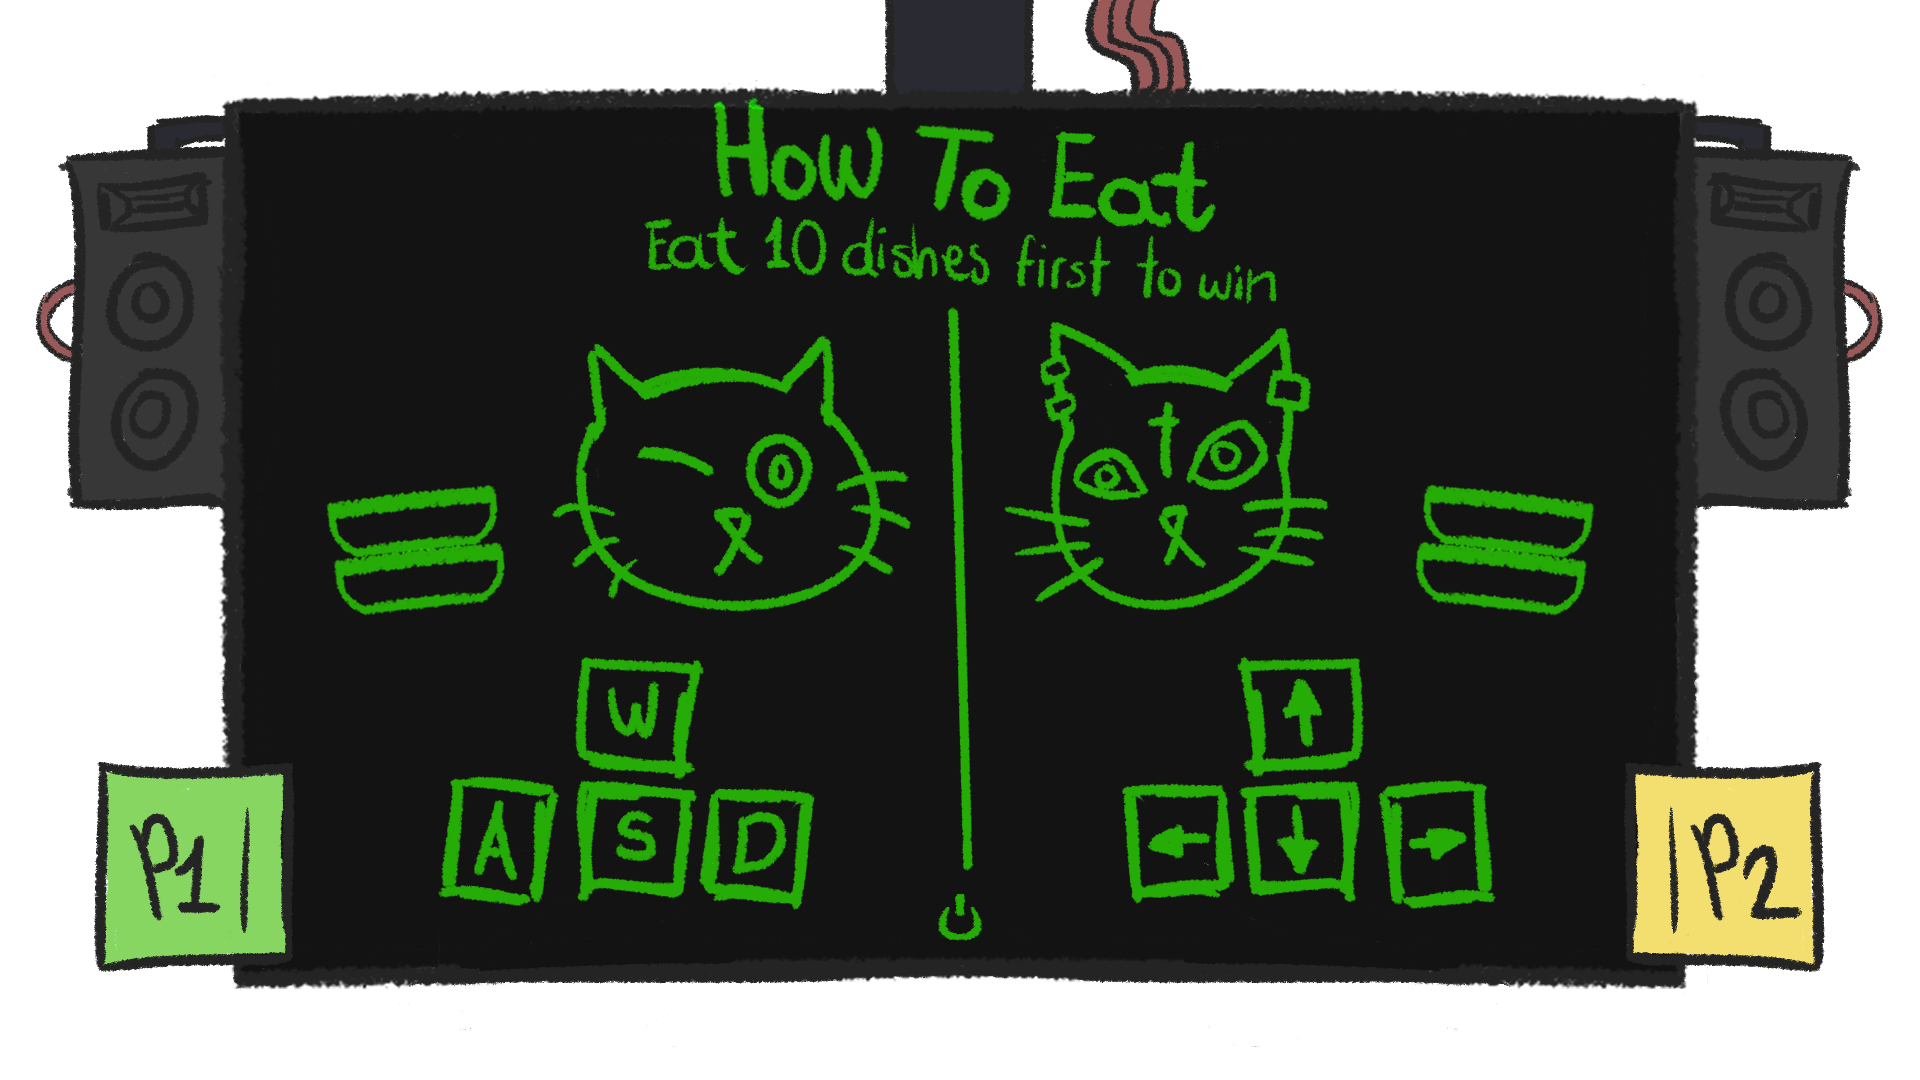 How To Eat
Eat 10 dishes first to win
W
A S D
↑
← ↓ →
P1
P2